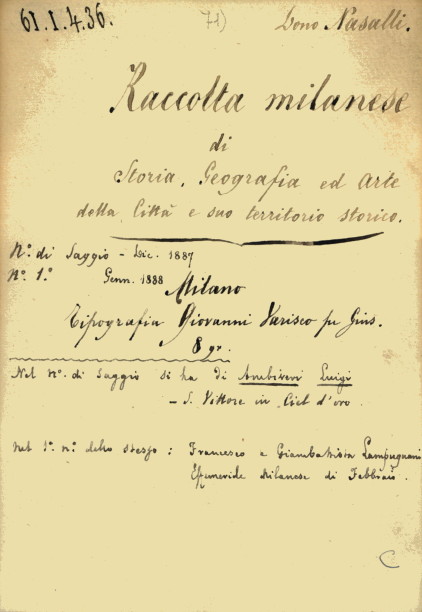 61.I.4.36. 71) Dono Nasalli.
Raccolta milanese
di
Storia, Geografia ed Arte
della Città e suo territorio storico.
N.º di Saggio - Dic. 1887
N.º 1.º Genn. 1888
Milano
Tipografia Giovanni Varisco fu Gius.
8 gr.
Nel nº. di saggio si ha di Ambiveri Luigi
- S. Vittore in Ciel d'oro
Nel 1º. nº. dello stesso: Francesco e Giambatista Lampugnani
Effemeride Milanese di Febbraio.
C